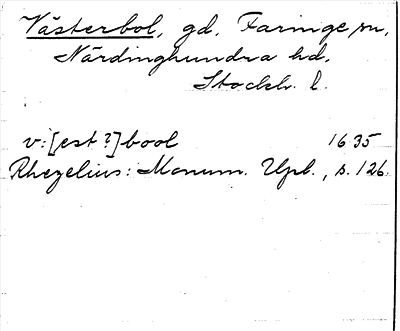 Västerbol, gd, Faringe sn,
Närdinghundra hd,
Stockh. l.
v:[est?]bool 1635
Rhezelius: Monum. Upl., s. 126.